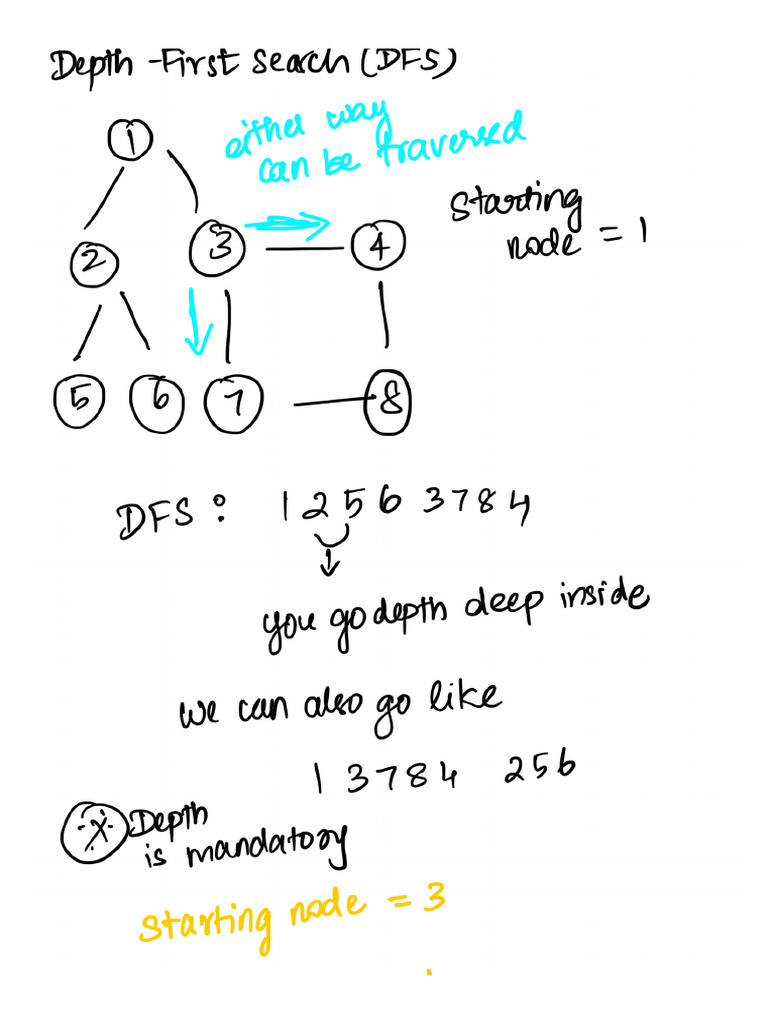 Depth-First Search (DFS)
either way
can be traversed
1
Starting
node = 1
2 3 4
5 6 7 8
DFS : 1 2 5 6 3 7 8 4
you go depth deep inside
we can also go like
1 3 7 8 4 2 5 6
Depth
is mandatory
Starting node = 3